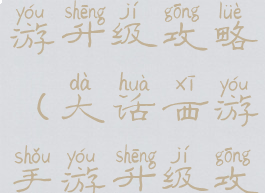 yóu shēng jí gōng lüè
游升级攻略
dà huà xī yóu
（大话西游
shǒu yóu shēng jí gōng
手游升级攻